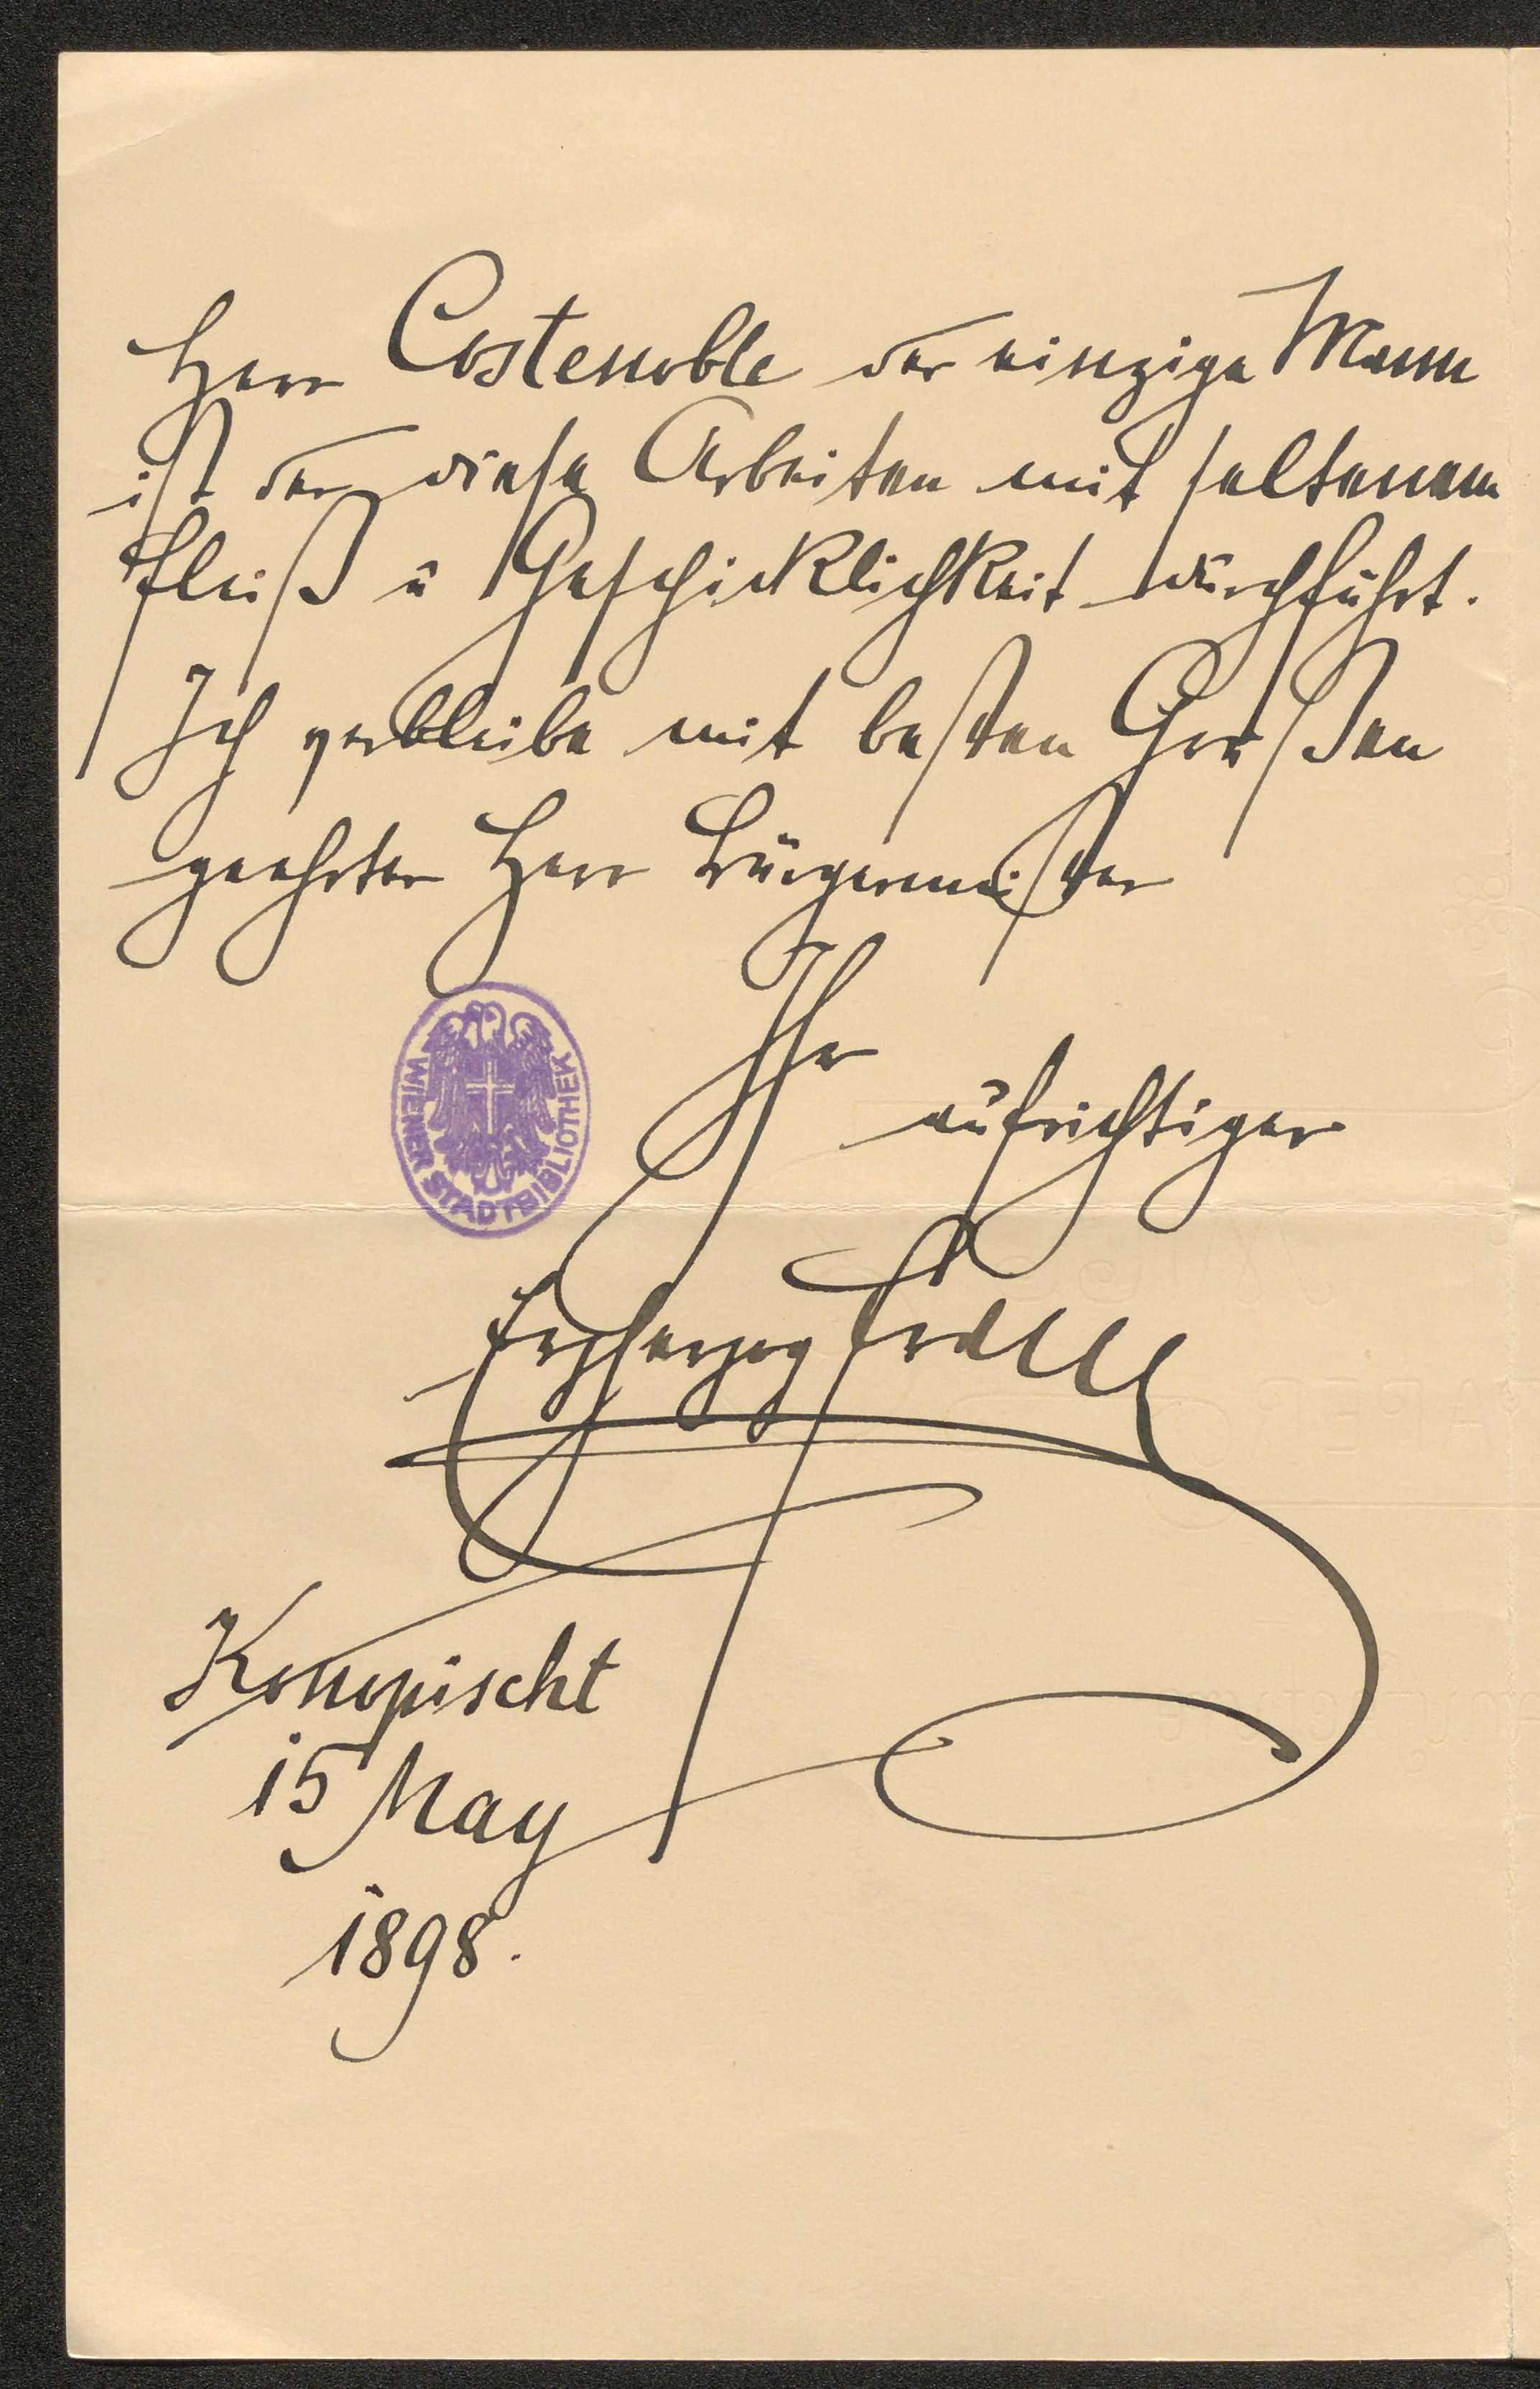 Herr Costenoble der einzige Mann
ist der diese Arbeiten mit seltenem
Fleiß u Geschicklichkeit durchführt.
Ich verbleibe mit besten Grüßen
geehrter Herr Bürgermeister
Ihr
aufrichtiger
Erzherzog Franz
WIENER STADTBIBLIOTHEK
Konopischt
15 May
1898.